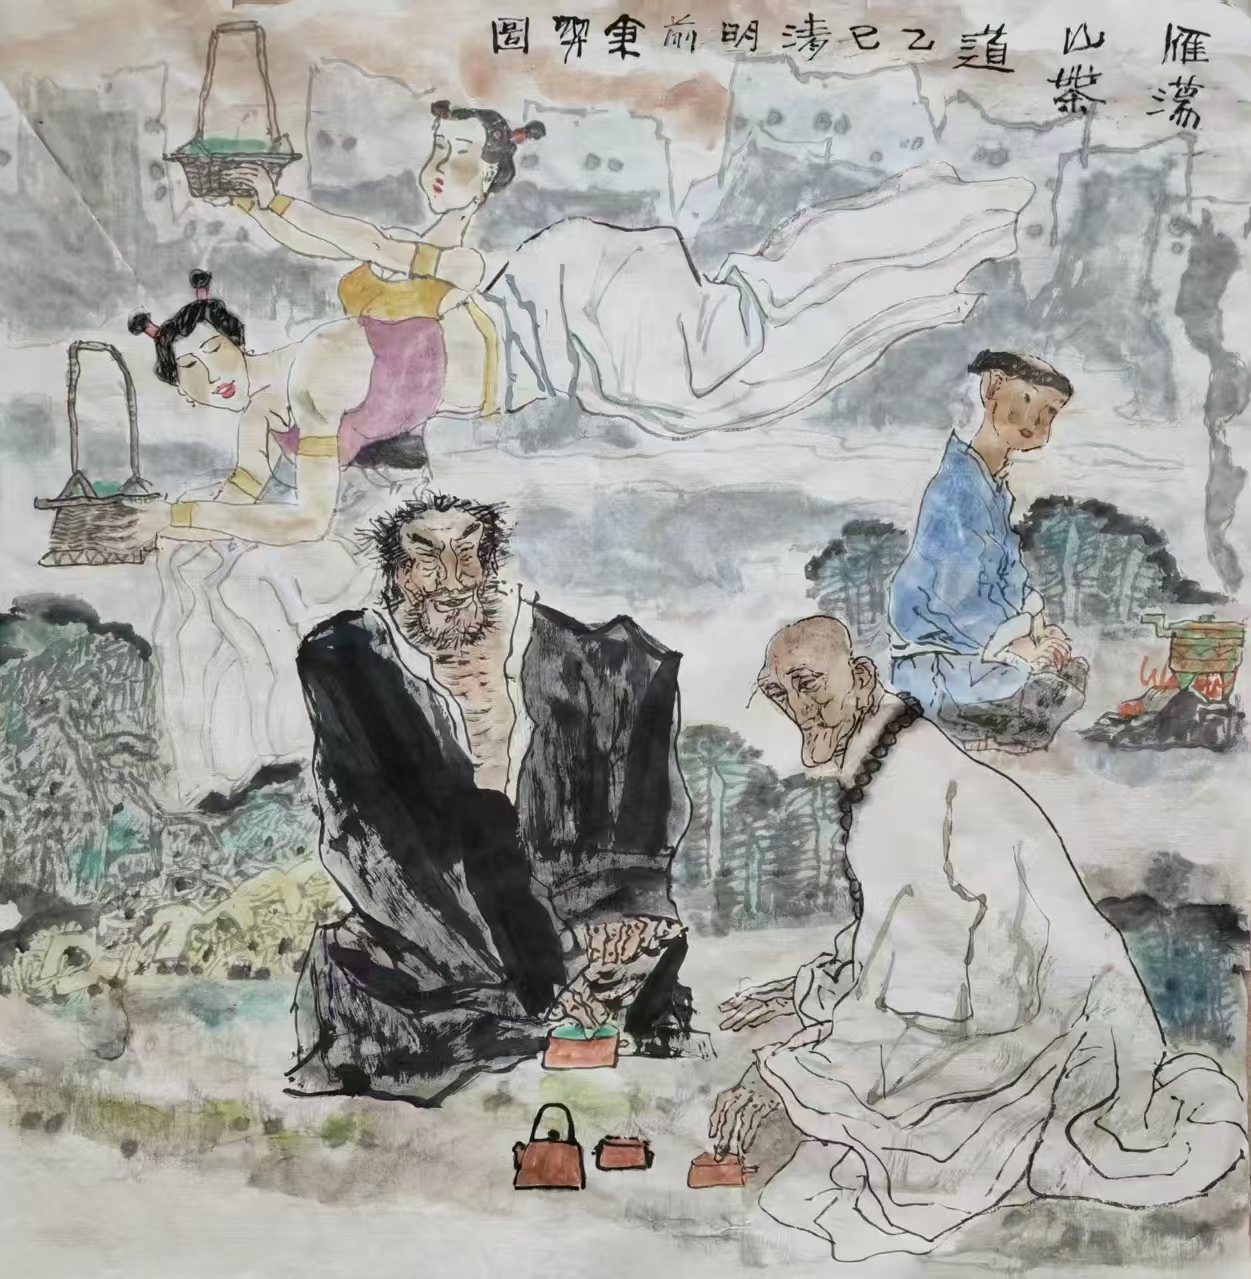 雁蕩
山茶
道乙巳清明前秉羿圖